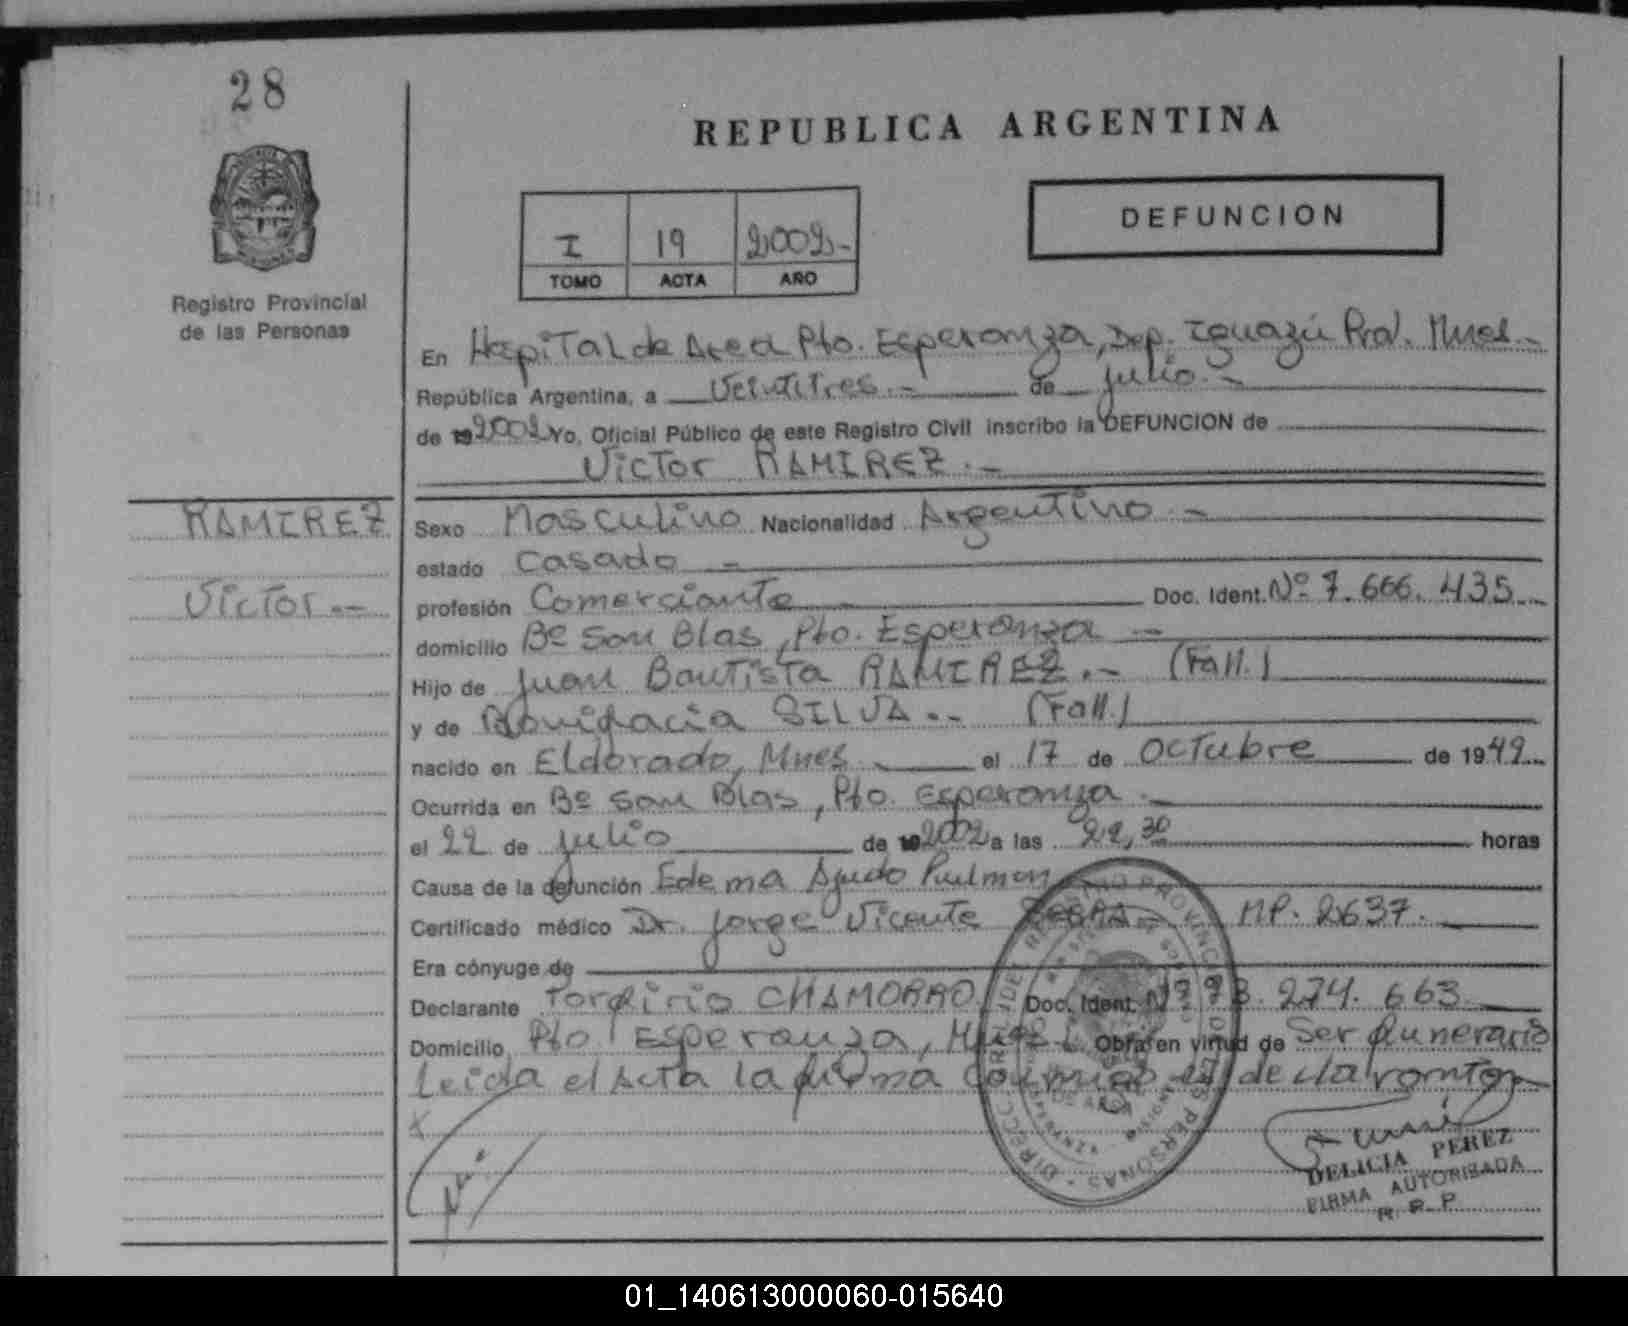 28
REPUBLICA ARGENTINA
DEFUNCION
I 19 2002.-
TOMO ACTA AÑO
Registro Provincial
de las Personas
En Hospital de Area Pto. Esperanza, Dep. Iguazú Prov. Mnes.-
República Argentina, a Veintitres.- de julio.-
de 19 2002 Yo, Oficial Público de este Registro Civil inscribo la DEFUNCION de
Victor RAMIREZ.-
RAMIREZ
Victor.-
Sexo Masculino Nacionalidad Argentino.-
estado Casado.-
profesión Comerciante Doc. Ident. Nº 7.666.435.-
domicilio Bº San Blas, Pto. Esperanza.-
Hijo de Juan Bautista RAMIREZ.- (Fall.)
y de Bonifacia SILVA.- (Fall.)
nacido en Eldorado, Mnes. el 17 de Octubre de 1949.-
Ocurrida en Bº San Blas, Pto. Esperanza.-
el 22 de julio de 19 2002 a las 22,30 horas
Causa de la defunción Edema Agudo Pulmon
Certificado médico Dr. Jorge Vicente MP. 2637.
Era cónyuge de
Declarante Porfirio CHAMORRO Doc. Ident. 274.663
Domicilio Pto. Esperanza, Obra en virtud de Ser funerario
Leida el Acta la firma conmigo el declarante
DELICIA PEREZ
FIRMA AUTORIZADA
R. P. P.
01_140613000060-015640